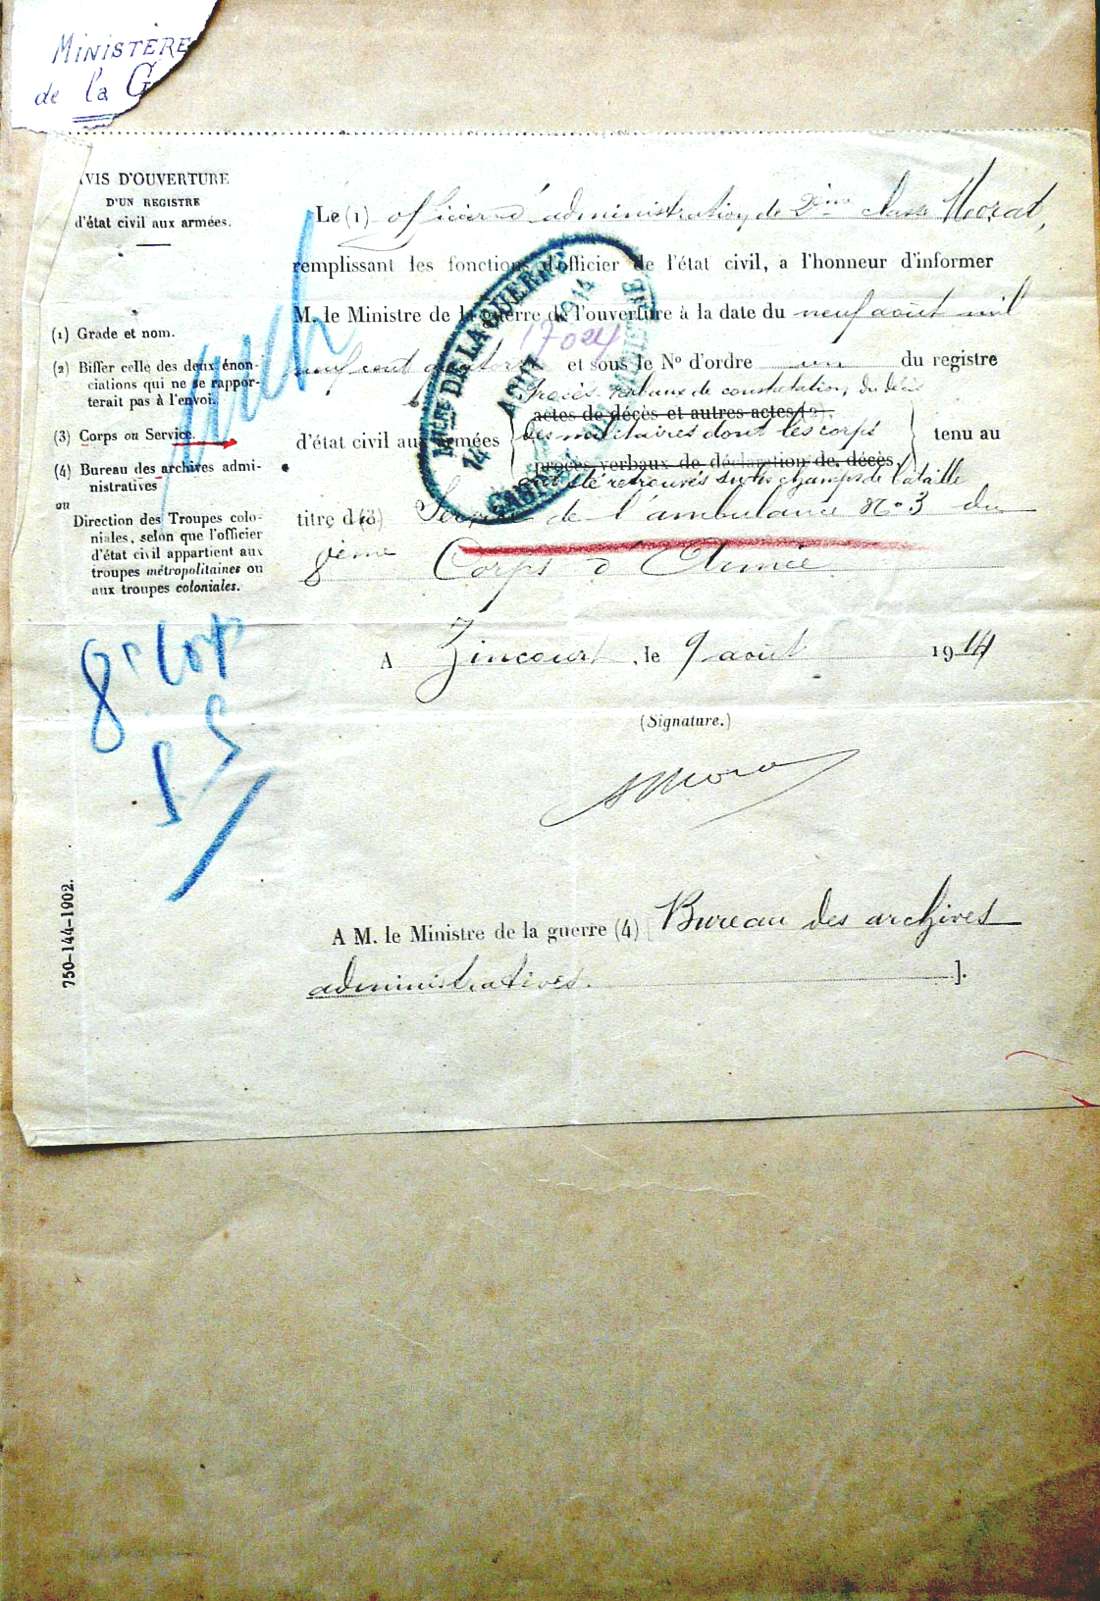 MINISTÈRE
de la G
AVIS D'OUVERTURE
D'UN REGISTRE
d'état civil aux armées.
(1) Grade et nom.
(2) Biffer celle des deux énon-
ciations qui ne se rappor-
terait pas à l'envoi.
(3) Corps ou Service.
(4) Bureau des archives admi-
nistratives
ou
Direction des Troupes colo-
niales, selon que l'officier
d'état civil appartient aux
troupes métropolitaines ou
aux troupes coloniales.
8e Corps
750-144-1902.
Le (1) officier d'administration de 2ème classe Morat,
remplissant les fonctions d'officier de l'état civil, a l'honneur d'informer
M. le Ministre de la guerre de l'ouverture à la date du neuf août mil
neuf cent quatorze et sous le No d'ordre un du registre
Procès-verbaux de constatation du décès
actes de décès et autres actes
d'état civil aux armées des militaires dont les corps tenu au
procès-verbaux de déclaration de décès
ont été retrouvés sur les champs de bataille
titre d (3) de l'ambulance No 3 du
8ème Corps d'Armée
MIN ERE DE LA GUERRE
14 AOUT 1914
17024
A Zincourt, le 9 août 1914
(Signature.)
Morat
A M. le Ministre de la guerre (4) [Bureau des archives
administratives. ].